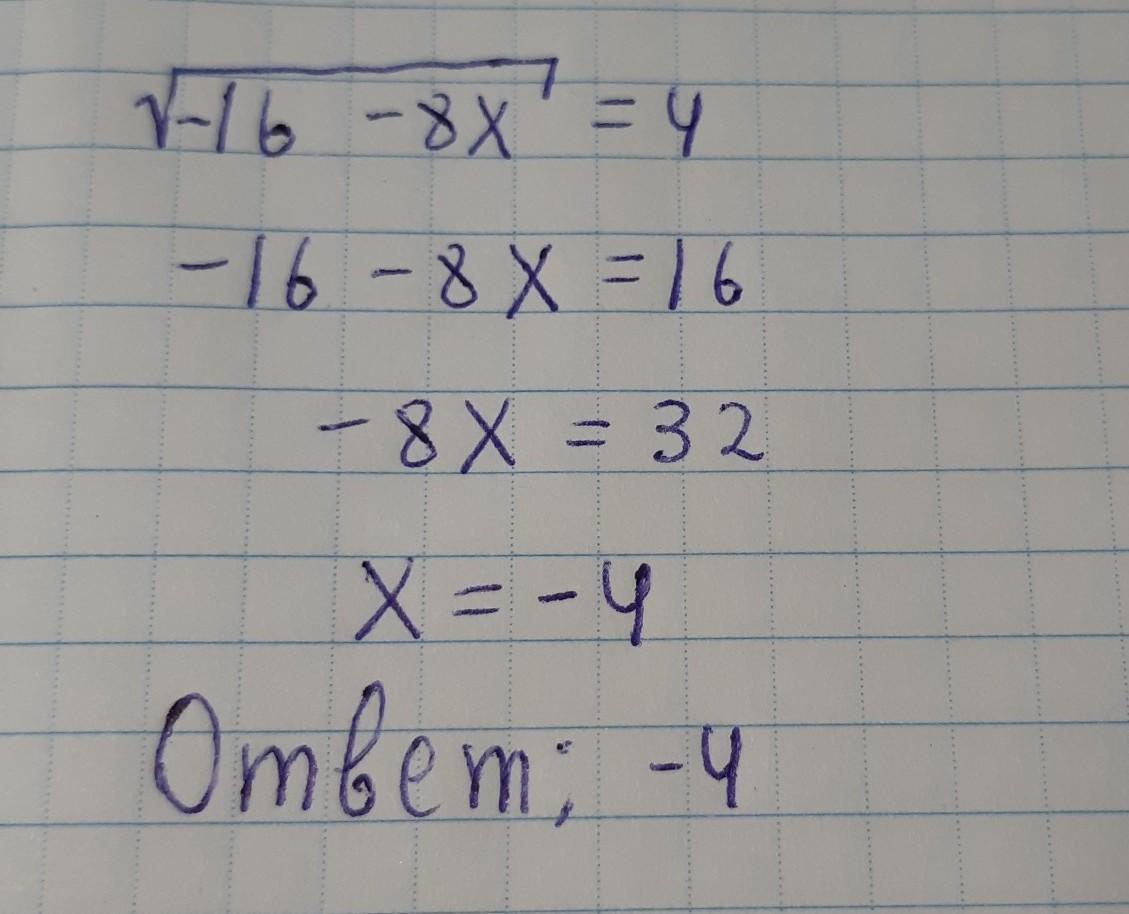 √-16 -8x = 4
-16 -8x = 16
-8x = 32
x = -4
Ответ; -4